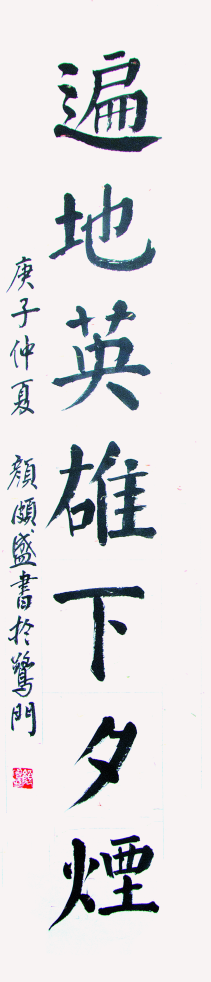 遍地英雄下夕煙
庚子仲夏 顏頗盛書於鷺門